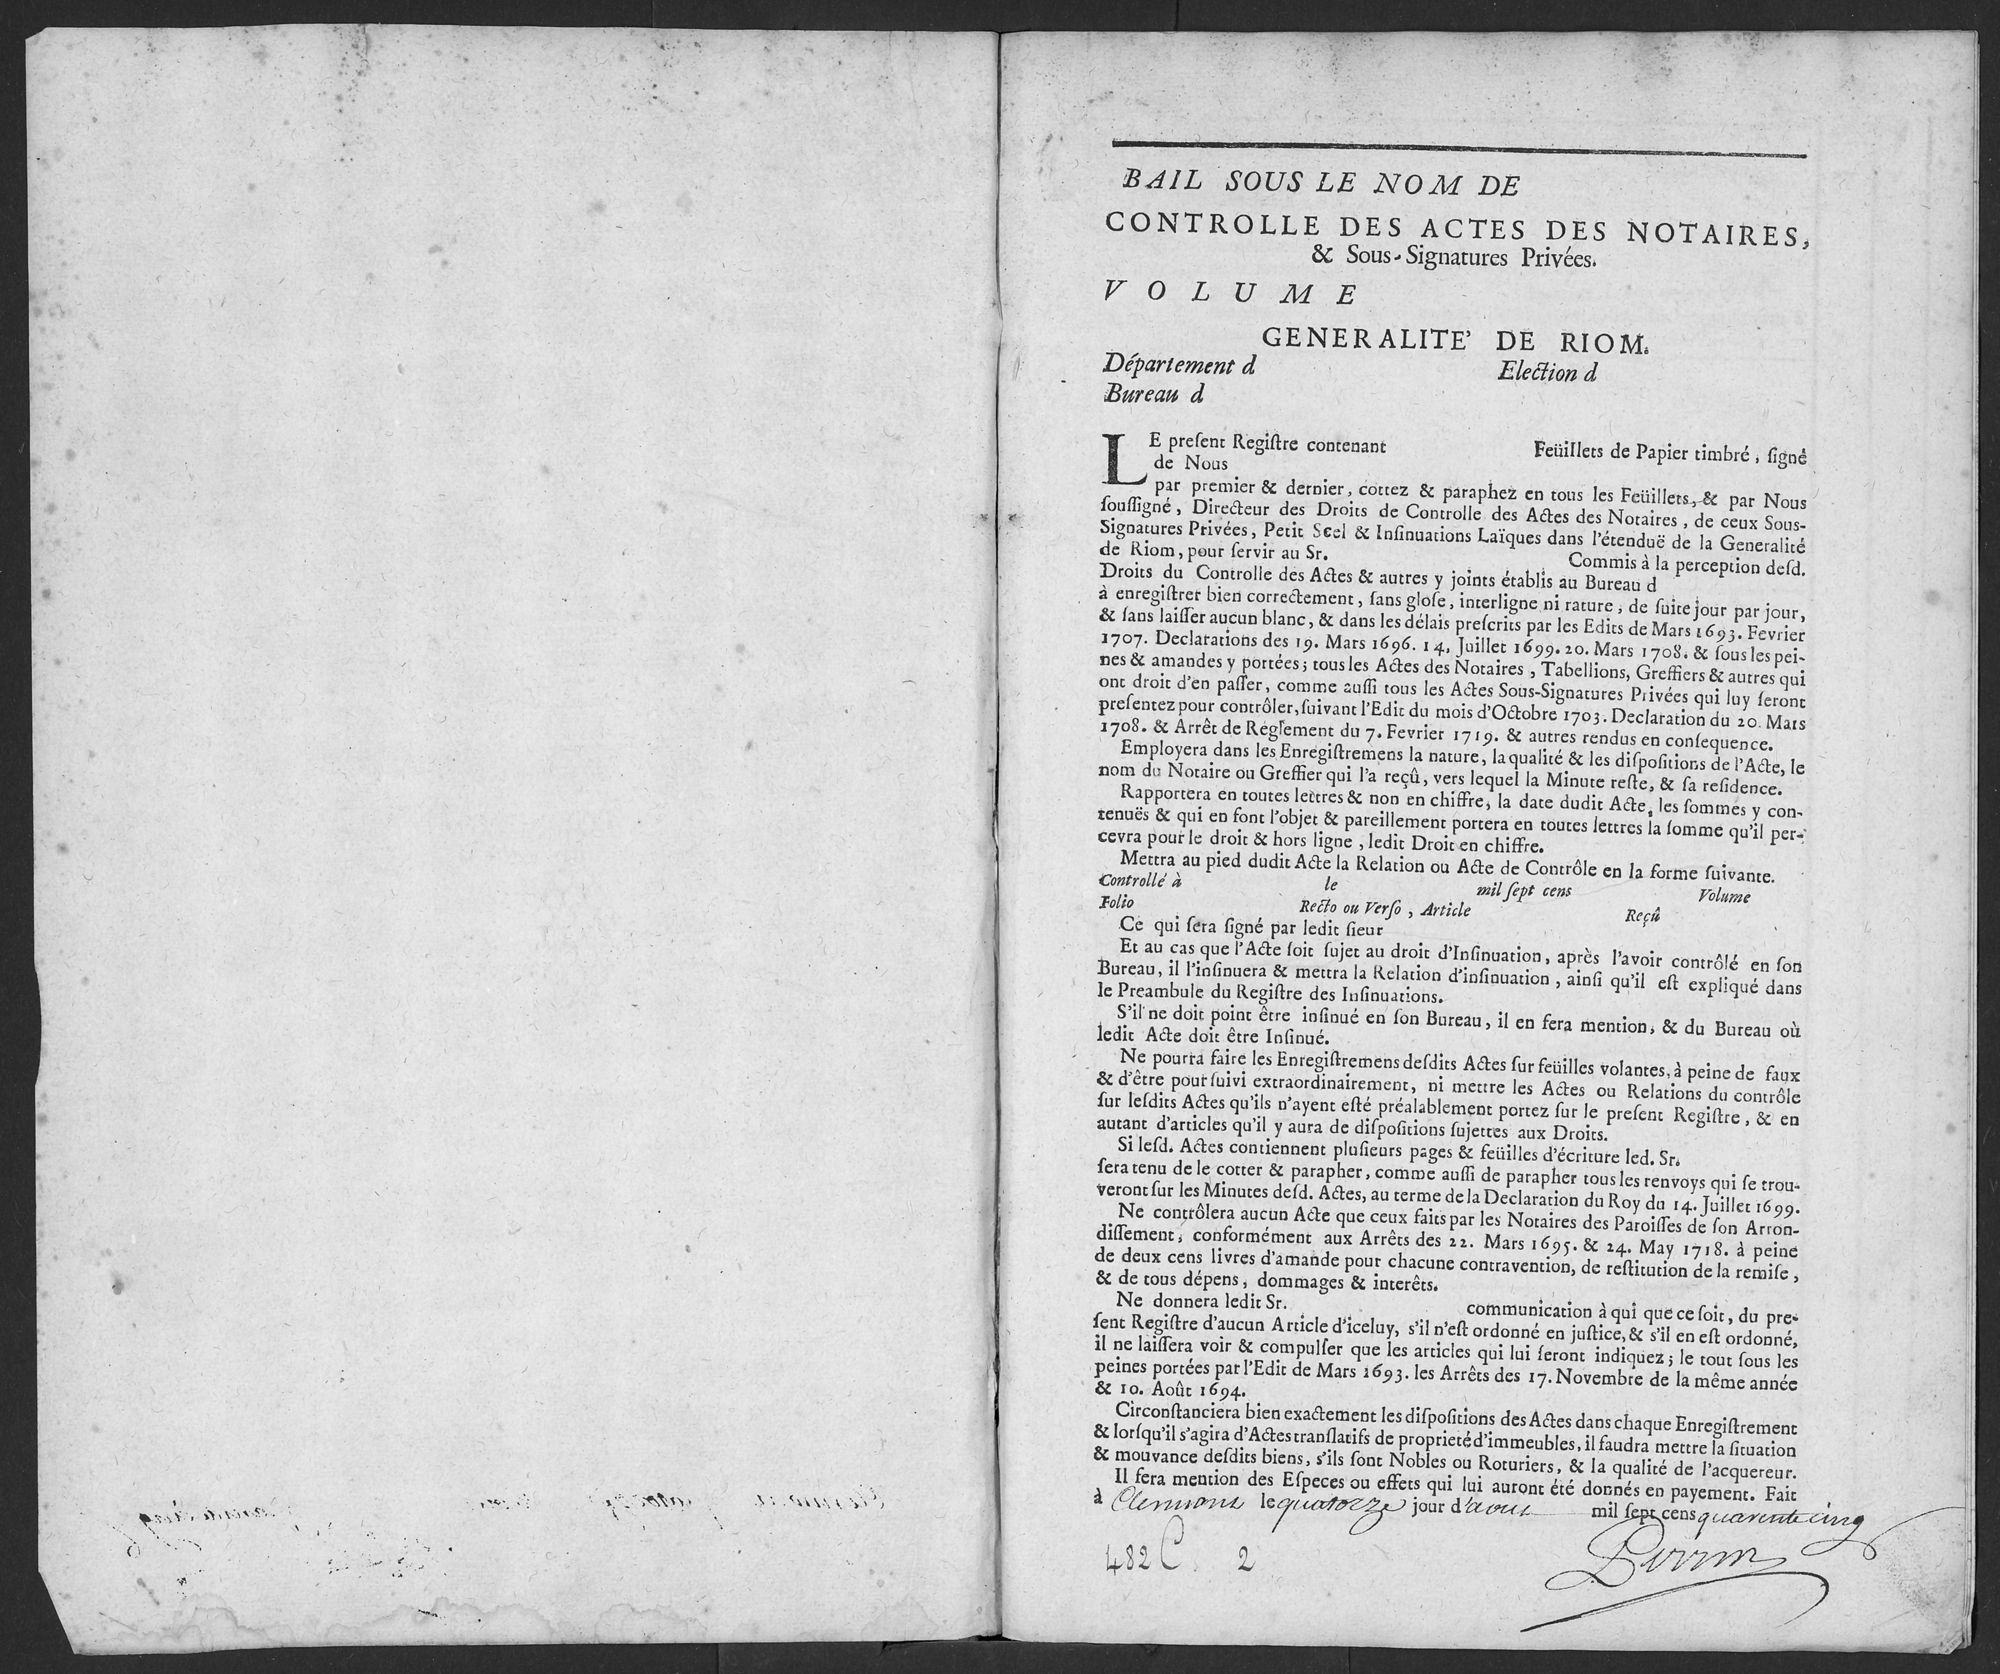 BAIL SOUS LE NOM DE
CONTROLLE DES ACTES DES NOTAIRES,
& Sous-Signatures Privées.
VOLUME
GENERALITE' DE RIOM.
Département d Election d
Bureau d
LE preſent Regiſtre contenant Feüillets de Papier timbré, ſigné
de Nous
par premier & dernier, cottez & paraphez en tous les Feüillets, & par Nous
ſouſſigné, Directeur des Droits de Controlle des Actes des Notaires, de ceux Sous-
Signatures Privées, Petit Scel & Inſinuations Laïques dans l'étenduë de la Generalité
de Riom, pour ſervir au Sr. Commis à la perception deſd.
Droits du Controlle des Actes & autres y joints établis au Bureau d
à enregiſtrer bien correctement, ſans gloſe, interligne ni rature, de ſuite jour par jour,
& ſans laiſſer aucun blanc, & dans les délais preſcrits par les Edits de Mars 1693. Fevrier
1707. Declarations des 19. Mars 1696. 14. Juillet 1699. 20. Mars 1708. & ſous les pei-
nes & amandes y portées; tous les Actes des Notaires, Tabellions, Greffiers & autres qui
ont droit d'en paſſer, comme auſſi tous les Actes Sous-Signatures Privées qui luy ſeront
preſentez pour contrôler, ſuivant l'Edit du mois d'Octobre 1703. Declaration du 20. Mars
1708. & Arrêt de Reglement du 7. Fevrier 1719. & autres rendus en conſequence.
Employera dans les Enregiſtremens la nature, la qualité & les diſpoſitions de l'Acte, le
nom du Notaire ou Greffier qui l'a reçû, vers lequel la Minute reſte, & ſa reſidence.
Rapportera en toutes lettres & non en chiffre, la date dudit Acte, les ſommes y con-
tenuës & qui en font l'objet & pareillement portera en toutes lettres la ſomme qu'il per-
cevra pour le droit & hors ligne, ledit Droit en chiffre.
Mettra au pied dudit Acte la Relation ou Acte de Contrôle en la forme ſuivante.
Controllé à le mil ſept cens Volume
Folio Recto ou Verſo, Article Reçû
Ce qui ſera ſigné par ledit ſieur
Et au cas que l'Acte ſoit ſujet au droit d'Inſinuation, après l'avoir contrôlé en ſon
Bureau, il l'inſinuera & mettra la Relation d'inſinuation, ainſi qu'il eſt expliqué dans
le Preambule du Regiſtre des Inſinuations.
S'il ne doit point être inſinué en ſon Bureau, il en fera mention, & du Bureau où
ledit Acte doit être Inſinué.
Ne pourra faire les Enregiſtremens deſdits Actes ſur feüilles volantes, à peine de faux
& d'être pourſuivi extraordinairement, ni mettre les Actes ou Relations du contrôle
ſur leſdits Actes qu'ils n'ayent eſté préalablement portez ſur le preſent Regiſtre, & en
autant d'articles qu'il y aura de diſpoſitions ſujettes aux Droits.
Si leſd. Actes contiennent pluſieurs pages & feüilles d'écriture led. Sr.
ſera tenu de le cotter & parapher, comme auſſi de parapher tous les renvoys qui ſe trou-
veront ſur les Minutes deſd. Actes, au terme de la Declaration du Roy du 14. Juillet 1699.
Ne contrôlera aucun Acte que ceux faits par les Notaires des Paroiſſes de ſon Arron-
diſſement, conformément aux Arrêts des 22. Mars 1695. & 24. May 1718. à peine
de deux cens livres d'amande pour chacune contravention, de reſtitution de la remiſe,
& de tous dépens, dommages & interêts.
Ne donnera ledit Sr. communication à qui que ce ſoit, du pre-
ſent Regiſtre d'aucun Article d'iceluy, s'il n'eſt ordonné en juſtice, & s'il en eſt ordonné,
il ne laiſſera voir & compulſer que les articles qui lui ſeront indiquez; le tout ſous les
peines portées par l'Edit de Mars 1693. les Arrêts des 17. Novembre de la même année
& 10. Août 1694.
Circonſtanciera bien exactement les diſpoſitions des Actes dans chaque Enregiſtrement
& lorſqu'il s'agira d'Actes tranſlatifs de proprieté d'immeubles, il faudra mettre la ſituation
& mouvance deſdits biens, s'ils ſont Nobles ou Roturiers, & la qualité de l'acquereur.
Il fera mention des Eſpeces ou effets qui lui auront été donnés en payement. Fait
à Clermont le quatorze jour d'aout mil ſept cens quarente cinq
Perrin
482 C 2